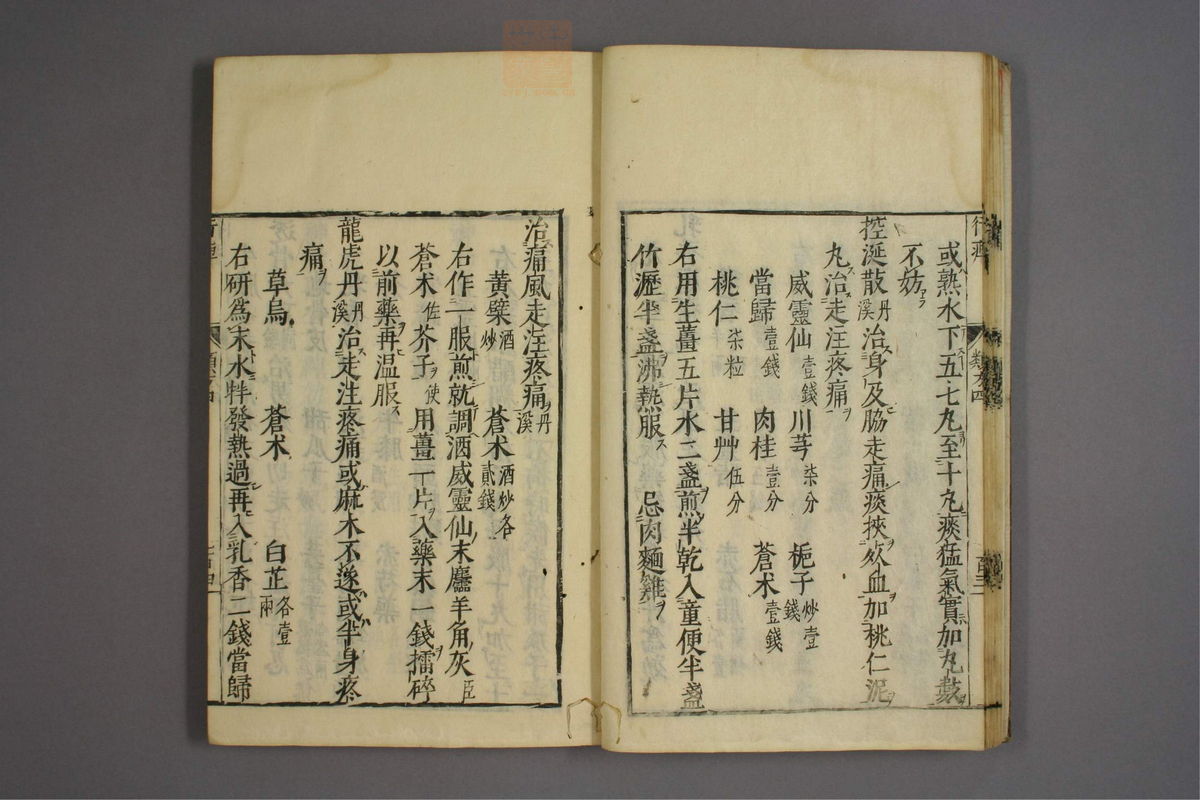 或熟水下五七丸至十丸痰猛氣實加丸數
不妨
控涎散丹溪治身及脇走痛痰挾死血加桃仁泥
丸治走注疼痛
威靈仙壹錢川芎柒分梔子炒壹錢
當歸壹錢肉桂壹分蒼术壹錢
桃仁柒粒甘艸伍分
右用生薑五片水二盞煎半乾入童便半盞
竹瀝半盞沸熱服忌肉麵雞
治痛風走注疼痛丹溪
黃蘗酒炒蒼术酒炒各貳錢
右作一服煎就調酒威靈仙末麢羊角灰臣
蒼术佐芥子使用薑一片入藥末一錢擂碎
以前藥再温服
龍虎丹丹溪治走注疼痛或麻木不遂或半身疼
痛
草烏蒼术白芷各壹兩
右研爲末水拌發熱過再入乳香二錢當歸